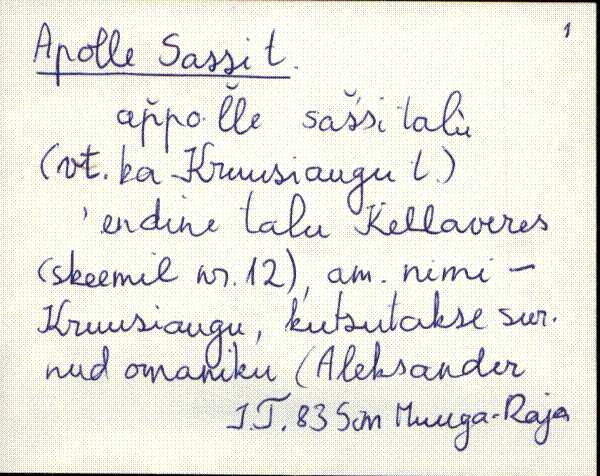 1
Apolle Sassi t.
ap̆po l̆le saššitalu
(vt. ka Kruusiaugu t.)
'endine talu Kellaveres
(skeemil nr. 12), am. nimi –
Kruusiaugu, kutsutakse sur-
nud omaniku (Aleksander
I.T. 83 Sim Muuga-Raja